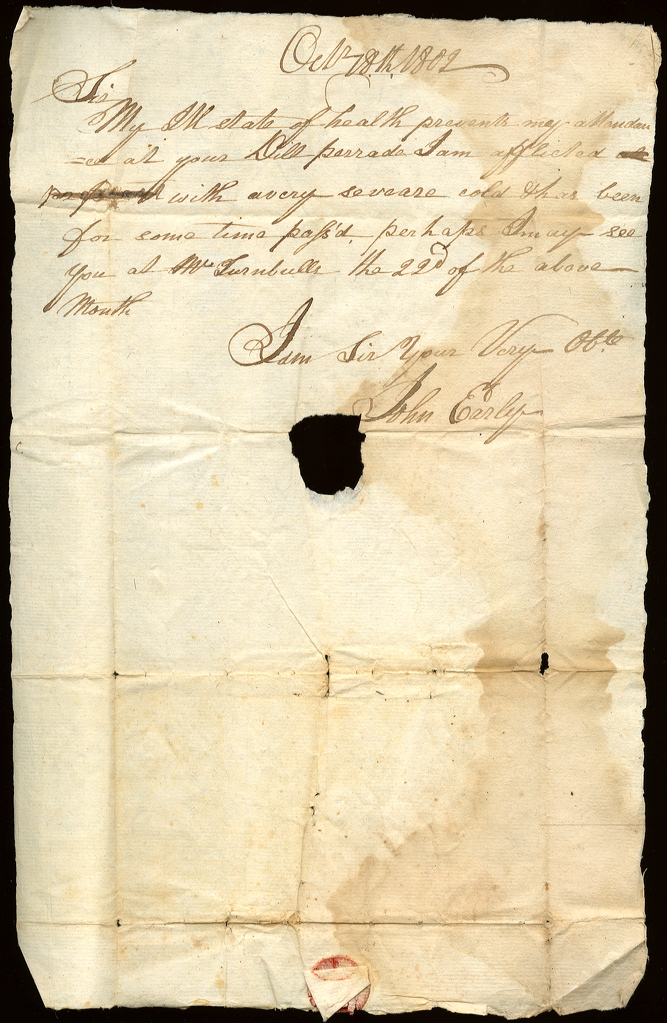 Octr 18th, 1802
Sir
My Ill state of health prevents my attendan
=ce at your Dill perrade I am afflicted
with avery seveare cold & has been
for some time pass'd, perhaps I may see
you at Mr Turnbulls the 22d of the above
Month
I am Sir Your Very Obt
John Early